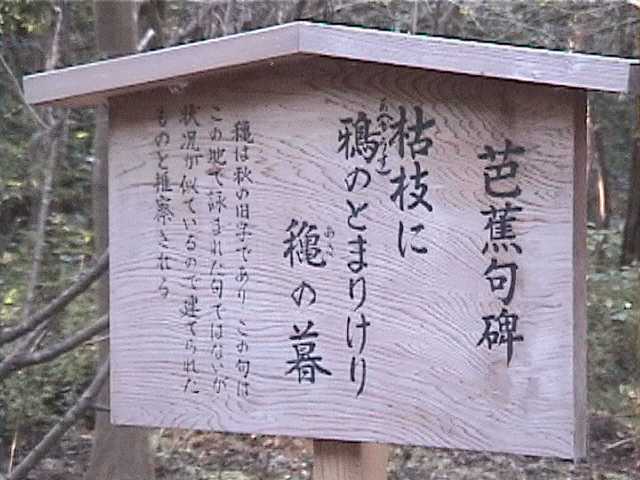 芭蕉句碑
枯枝に
鴉のとまりけり
穐の暮
穐は秋の旧字であり この句は
この地で詠まれた句ではないが
状況が似ているので建てられた
ものと推察される